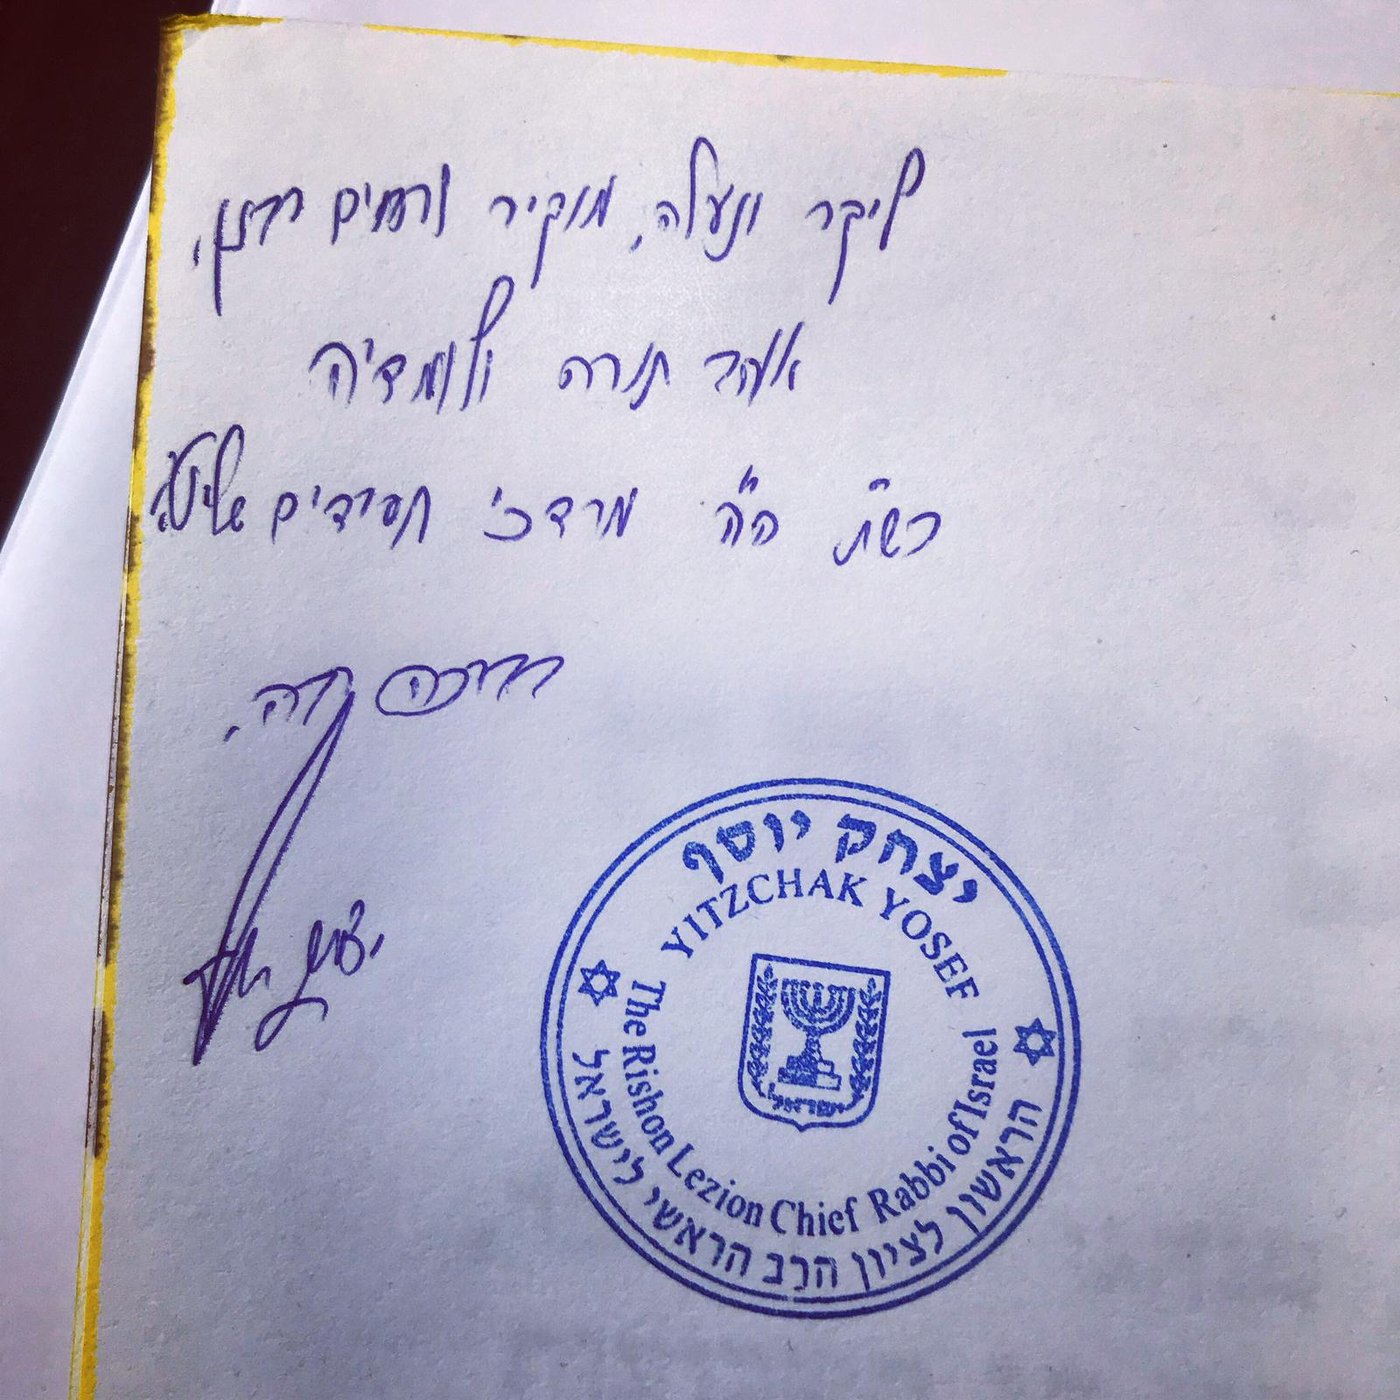 ליקר ונעלה, מוקיר ורחים רבנן,
אוהב תורה ולומדיה
כש"ת ה"ה מרדכי חסידים שליט"א
בברכה רבה,
יצחק יוסף
יצחק יוסף
YITZCHAK YOSEF
The Rishon Lezion Chief Rabbi of Israel
הראשון לציון הרב הראשי לישראל
ישראל